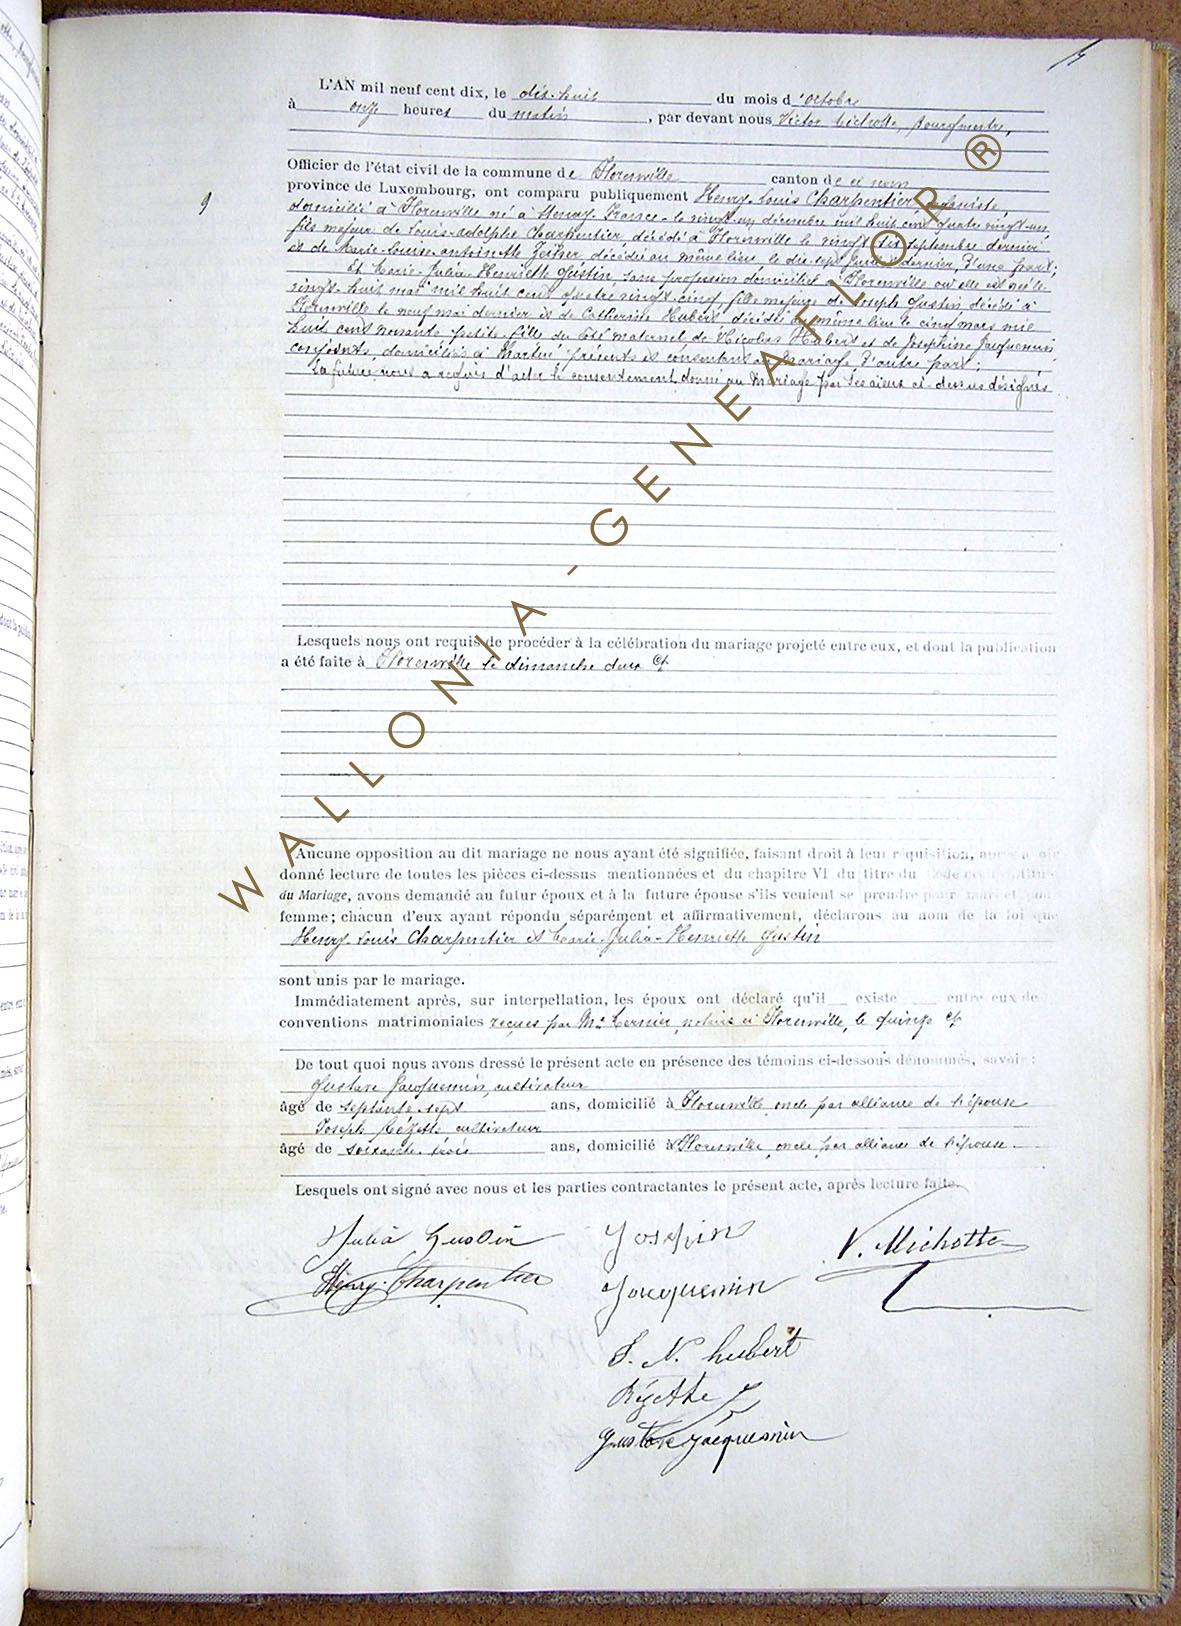 L'AN mil neuf cent dix, le dix-huit du mois d'octobre
à onze heures du matin, par devant nous Victor Michotte, Bourgmestre,
Officier de l'état civil de la commune de Florenville canton de ce nom
9
province de Luxembourg, ont comparu publiquement Henry-Louis Charpentier,
domicilié à Florenville né à Stenay, France, le vingt-un décembre mil huit cent quatre vingt-un,
fils majeur de Louis-Adolphe Charpentier décédé à Florenville le vingt septembre dernier
et de Marie-Louise-Antoinette décédée au même lieu le dix-sept dernier, d'une part;
Et Marie-Julia-Henriette Gustin, sans profession domiciliée à Florenville où elle est née le
vingt-huit mai mil huit cent quatre vingt-cinq, fille majeure de Joseph Gustin décédé à
Florenville le neuf mai dernier et de Catherine Hubert décédée au même lieu le cinq mars mil
huit cent nonante petite-fille du côté maternel de Nicolas Hubert et de Joséphine Jacquemin
conjoints, domiciliés à Martué présents et consentant au mariage, d'autre part;
La future nous a requis d'acter le consentement donné au mariage par ses aïeux ci-dessus désignés
Lesquels nous ont requis de procéder à la célébration du mariage projeté entre eux, et dont la publication
a été faite à Florenville le dimanche deux Ct
Aucune opposition au dit mariage ne nous ayant été signifiée, faisant droit à leur réquisition, après avoir
donné lecture de toutes les pièces ci-dessus mentionnées et du chapitre VI du titre du Code
du Mariage, avons demandé au futur époux et à la future épouse s'ils veulent se prendre pour mari et pour
femme; chacun d'eux ayant répondu séparément et affirmativement, déclarons au nom de la loi que
Henry-Louis Charpentier et Marie-Julia-Henriette Gustin
sont unis par le mariage.
Immédiatement après, sur interpellation, les époux ont déclaré qu'il existe entre eux de
conventions matrimoniales reçues par Me notaire à Florenville, le quinze Ct
De tout quoi nous avons dressé le présent acte en présence des témoins ci-dessous dénommés, savoir:
Gustave Jacquemin, cultivateur
âgé de septante-sept ans, domicilié à Florenville oncle par alliance de l'épouse
Joseph Rézette cultivateur
âgé de soixante-trois ans, domicilié à Florenville, oncle par alliance de l'épouse
Lesquels ont signé avec nous et les parties contractantes le présent acte, après lecture faite.
Julia Gustin
Henry Charpentier
Josephin
Jacquemin
V. Michotte
J. N. hubert
Rézette J
gustave jacquemin
WALLONIA-GENEAFLOR ®